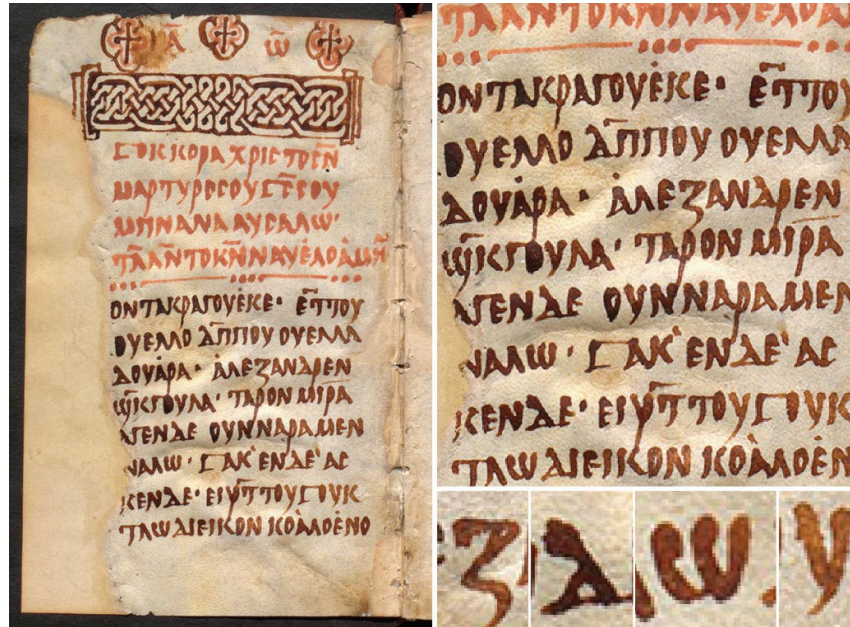 ⲁ̄ ⲱ̄
ⲅⲟⲕⲕⲟⲣⲁ ⲭⲣⲓⲥⲧⲟⲥⲛ̄
ⲙⲁⲣⲧⲩⲣⲟⲥⲟⲩ ⲅ̄ⲥ̄ⲥⲟⲩ
ⲙⲏⲛⲁⲛⲁ ⲁⲩⲥⲁⲗⲱ·
ⲧⲗ̄ⲗⲛ̄ⲧⲟⲕⲛ̄ⲛⲁⲩⲉⲗⲟ ⲁ̇ⲙⲏ̄
ⲟⲛ ⲧⲁⲕⲣⲁⲅⲟⲩⲉ̇ⲕⲉ· ⲉ̄ⲧⲧⲟⲩ
ⲟⲩⲉⲗⲗⲟ ⲇ̄ⲡⲡⲟⲩ ⲟⲩⲉⲗⲗⲁ
ⲇⲟⲩⲁ̇ⲣⲁ· ⲁ̇ⲗⲉⲝⲁⲛⲇⲣⲉⲛ
ϣ̄ⲓⲕⲅⲟⲩⲗⲁ· ⲧⲁⲣⲟⲛ ⲙⲓ̄ⲣⲁ
ⲁⲅⲉⲛⲇⲉ ⲟⲩⲛⲛⲁⲣⲁ ⲙⲉⲛ
ⲛⲁⲗⲱ· ⲅⲁⲕ̇ ⲉⲛⲇⲉ̇ ⲁⲥ
ⲕⲉⲛⲇⲉ· ⲉⲓⲣ̄ⲧ̄ⲧⲟⲩ ⲅⲟⲩⲕ
ⲧⲗⲱ ⲇⲓⲉⲓⲕⲟⲛ ⲕⲟⲁ̇ⲗⲟⲉ̇ⲛⲟ
ⲧⲗ̄ⲗⲛ̄ⲧⲟⲕⲛ̄ⲛⲁⲩⲉⲗⲟ ⲁ̇
ⲟⲛ ⲧⲁⲕⲣⲁⲅⲟⲩⲉ̇ⲕⲉ· ⲉ̄ⲧⲧⲟⲩ
ⲟⲩⲉⲗⲗⲟ ⲇ̄ⲡⲡⲟⲩ ⲟⲩⲉⲗⲗⲁ
ⲇⲟⲩⲁ̇ⲣⲁ· ⲁ̇ⲗⲉⲝⲁⲛⲇⲣⲉⲛ
ϣ̄ⲓⲕⲅⲟⲩⲗⲁ· ⲧⲁⲣⲟⲛ ⲙⲓ̄ⲣⲁ
ⲁⲅⲉⲛⲇⲉ ⲟⲩⲛⲛⲁⲣⲁ ⲙⲉⲛ
ⲛⲁⲗⲱ· ⲅⲁⲕ̇ ⲉⲛⲇⲉ̇ ⲁⲥ
ⲕⲉⲛⲇⲉ· ⲉⲓⲣ̄ⲧ̄ⲧⲟⲩ ⲅⲟⲩⲕ
ⲧⲗⲱ ⲇⲓⲉⲓⲕⲟⲛ ⲕⲟⲁ̇ⲗⲟⲉ̇ⲛ
ⲝ ⲇ ⲱ ⲩ